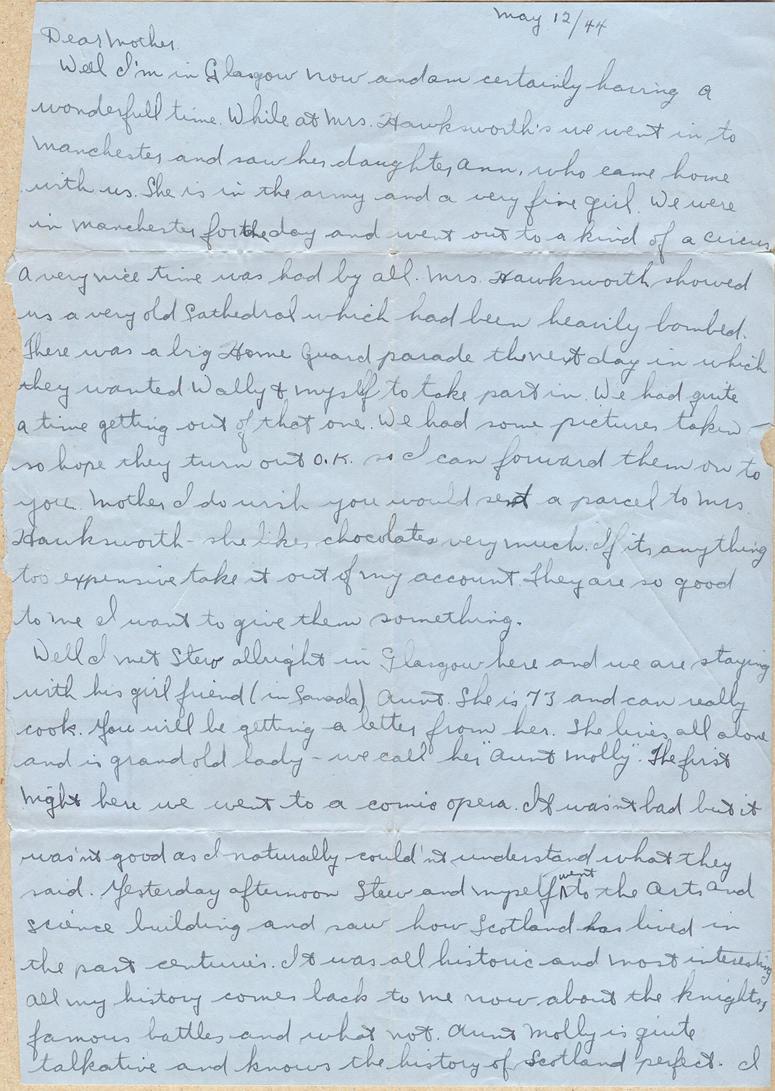 May 12/44
Dear Mother.
Well I'm in Glasgow now and am certainly having a
wonderfull time. While at Mrs. Hawksworth's we went in to
Manchester and saw her daughter, Ann, who came home
with us. She is in the army and a very fine girl. We were
in Manchester for the day and went out to a kind of a circus
A very nice time was had by all. Mrs. Hawksworth showed
us a very old Cathedral which had been heavily bombed.
There was a big Home Guard parade the next day in which
they wanted Wally & myself to take part in. We had quite
a time getting out of that one. We had some pictures taken –
so hope they turn out O.K. so I can forward them on to
you. Mother I do wish you would send a parcel to Mrs.
Hawksworth – she likes chocolates very much. If its anything
too expensive take it out of my account. They are so good
to me I want to give them something.
Well I met Stew allright in Glasgow here and we are staying
with his girl friend (in Canada) Aunt. She is 73 and can really
cook. You will be getting a letter from her. She lives all alone
and is grand old lady – we call her "Aunt Molly". The first
night here we went to a comic opera. It wasn't bad but it
was'nt good as I naturally could'nt understand what they
said. Yesterday afternoon Stew and myself went to the Arts and
Science building and saw how Scotland has lived in
the past centuries. It was all historic and most interesting
all my history comes back to me now about the knights,
famous battles and what not. Aunt Molly is quite
talkative and knows the history of Scotland perfect. I